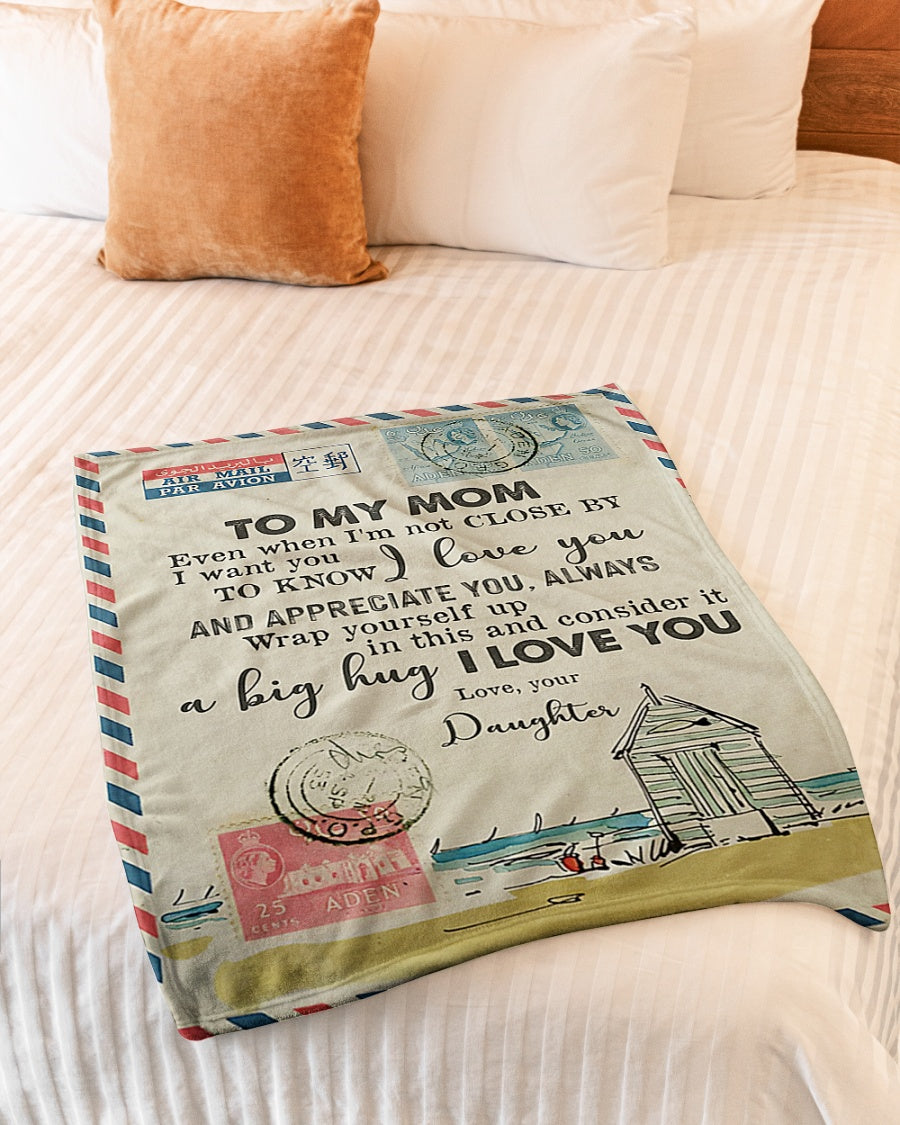 بالبريد الجوى
AIR MAIL
PAR AVION
空郵
ADEN
ADEN 50
TO MY MOM
Even when I'm not CLOSE BY
I want you
TO KNOW I love you
AND APPRECIATE YOU, ALWAYS
Wrap yourself up
in this and consider it
a big hug I LOVE YOU
Love, your
Daughter
G.P.O.
25
CENTS
ADEN